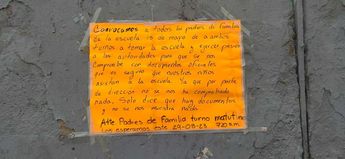 Convocamos a todos los padres de familia
de la escuela 15 de mayo de ambos
turnos a tomar la escuela y ejercer presion
a las autoridades para que se nos
compruebe con documentos oficiales
que es seguro que nuestros niños
asistan a la escuela. Ya que por parte
de dirección no se nos ha comprobado
nada. Solo dice que hay documentos
y no se nos muestra nada.
Atte Padres de Familia turno matutino
Los esperamos este 29-08-23 7:20 a.m.